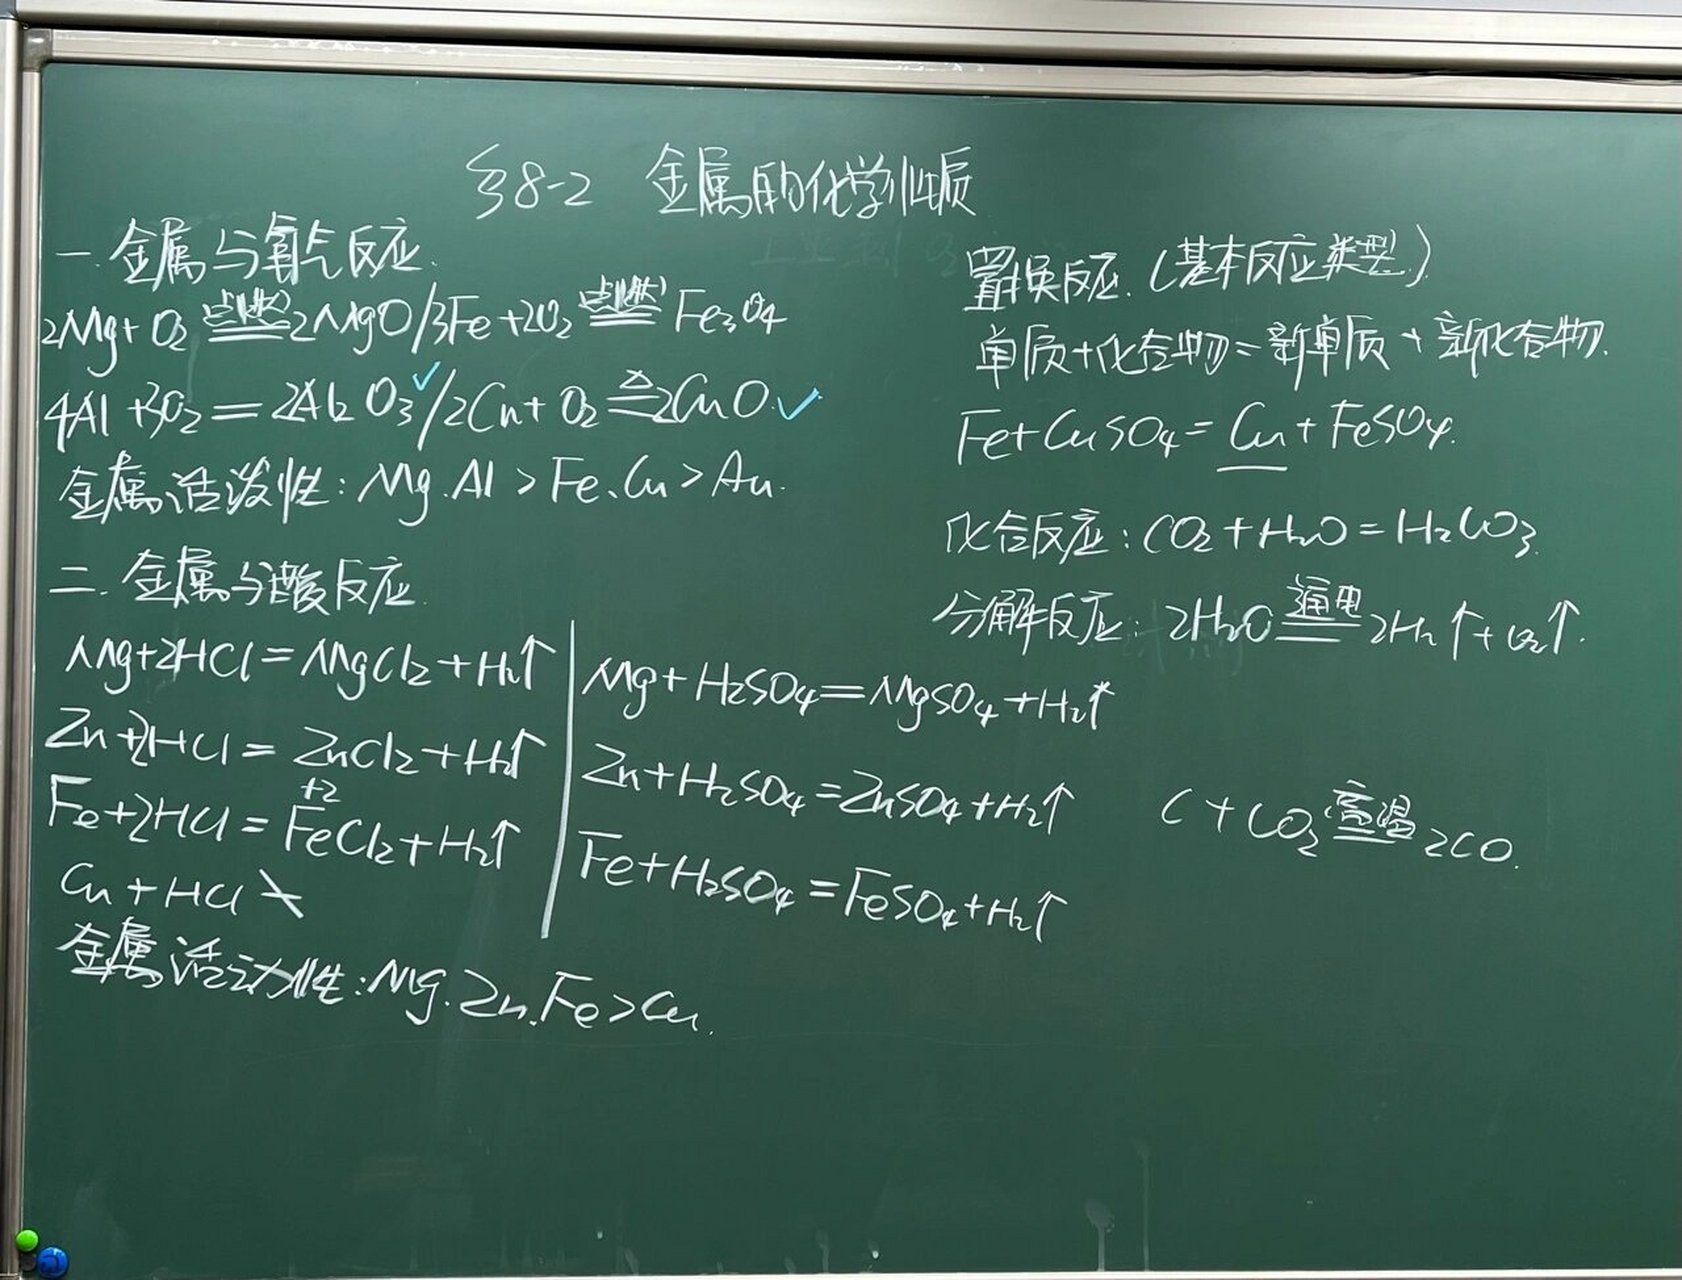 §8-2 金属的化学性质
一.金属与氧气反应.
2Mg+O₂ 点燃 2MgO/3Fe+2O₂ 点燃 Fe₃O₄
4Al+3O₂=2Al₂O₃✓/2Cu+O₂ △ 2CuO.✓
金属活泼性:Mg.Al>Fe、Cu>Au.
二.金属与酸反应.
Mg+2HCl=MgCl₂+H₂↑
Zn+2HCl=ZnCl₂+H₂↑
+2
Fe+2HCl=FeCl₂+H₂↑
Cu+HCl ╳
金属活动性:Mg.Zn.Fe>Cu.
Mg+H₂SO₄=MgSO₄+H₂↑
Zn+H₂SO₄=ZnSO₄+H₂↑
Fe+H₂SO₄=FeSO₄+H₂↑
置换反应.(基本反应类型)
单质+化合物=新单质+新化合物.
Fe+CuSO₄=Cu+FeSO₄.
化合反应:CO₂+H₂O=H₂CO₃.
分解反应:2H₂O 通电 2H₂↑+O₂↑.
C+CO₂ 高温 2CO.